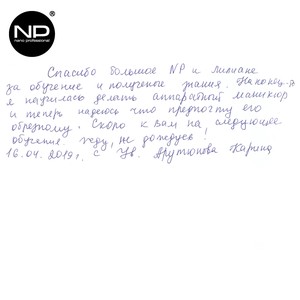 NP
nano professional
Спасибо большое NP и Лилиане
за обучение и полученные знания. Наконец-то
я научилась делать аппаратный маникюр
и теперь надеюсь что предпочту его
обрезному. Скоро к вам на следующее
обучение. Жду, не дождусь!
16.04.2019г. С Ув. Арутюнова Карина